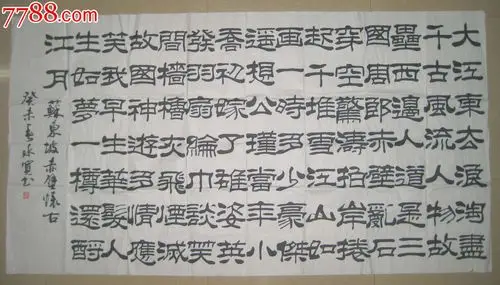 7788.com
大江東去浪淘盡
千古風流人物故
壘西邊人道是三
國周郎赤壁亂石
穿空驚濤拍岸捲
起千堆雪江山如
画一時多少豪傑
遥想公瑾當年小
喬初嫁了雄姿英
發羽扇綸巾談笑
間檣櫓灰飛煙滅
故國神遊多情應
笑我早生華髮人
生如夢一樽還酹
江月
蘇東坡赤壁懷古
癸未春